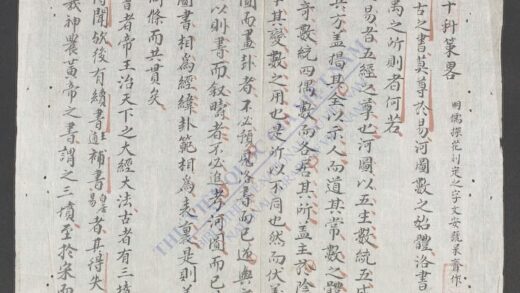 十科策畧
明儒探花刘定之字文安號呆齋作
古之書莫尊於易河圖數之始體洛書
禹之所則者何若
易者五經之也河圖以五生數統五成
其方盖揭其全以示人而道其常數之體
奇數統四偶數而各居其所盖主於陰
其變數之用也是所以不同也然而伏羲
圖而畫卦者不必預見洛書而已逆與之
以則書而叙疇者不必追考河圖而已
圖書相爲經緯卦範相爲表裏是則
條而共貫矣
者帝王治天下之大經大法古者有三墳
得聞攷後有續書補書者其得失
羲神農黃帝之書謂之三墳至於宋而
THƯ VIỆN QUỐC GIA VIỆT NAM